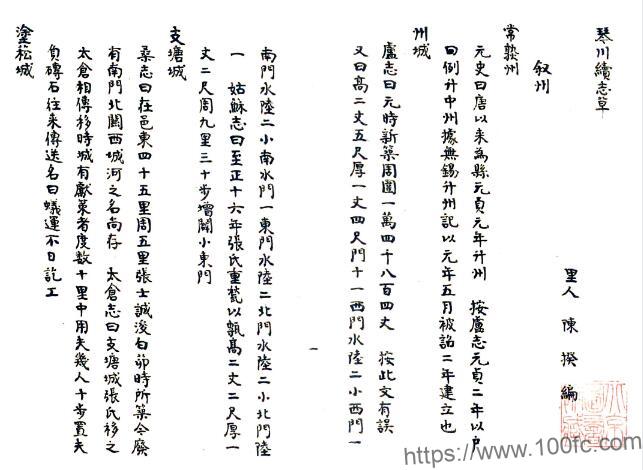 琴川續志草
里人 陳揆 編
叙州
常熟州
元史曰唐以来為縣元貞元年升州 按盧志元貞二年以户
曰例升中州據無錫升州記以元年五月被詔二年建立也
州城
盧志曰元時新築周圍一萬四千八百四丈 按此文有誤
又曰高二丈五尺厚一丈四尺門十一西門水陸二小西門一
南門水陸二小南水門一東門水陸二北門水陸二小北門陸
一 姑蘇志曰至正十六年張氏重甃以甎高二丈二尺厚一
丈二尺周九里三十步增闢小東門
支塘城
桑志曰在邑東四十五里周五里張士誠浚白茆時所築今廢
有南門北關西城河之名尚存 太倉志曰支塘城張氏移之
太倉相傳移時城有獻策者度數十里中用夫幾人十步置夫
負磚石往来傳送名曰蟻運不日訖工
塗松城
https://www.100fc.com